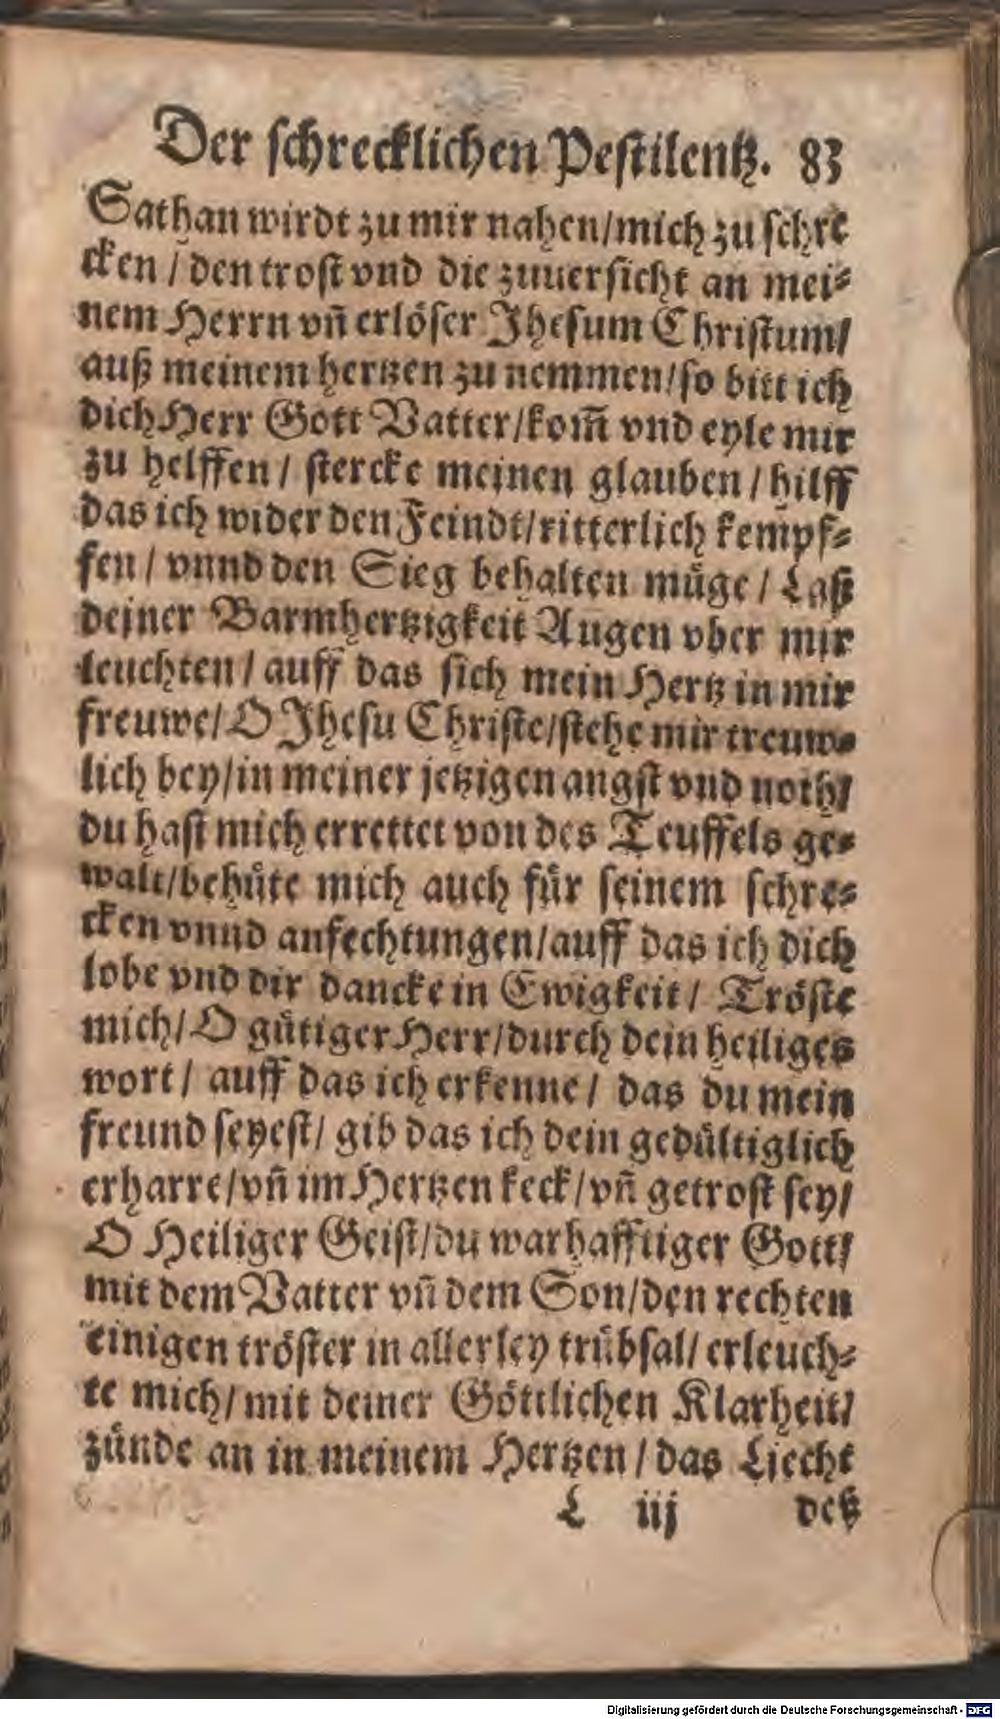 Der ſchrecklichen Peſtilentz. 83
Sathan wirdt zu mir nahen/mich zu ſchre
cken / den troſt vnd die zuuerſicht an mei⸗
nem Herrn vñ erlöſer Jheſum Chriſtum/
auß meinem hertzen zu nemmen/ſo bitt ich
dich Herr Gott Vatter/kom̃ vnd eyle mir
zu helffen / ſtercke meinen glauben / hilff
das ich wider den Feindt/ritterlich kempf⸗
fen / vnnd den Sieg behalten müge / Laß
deiner Barmhertzigkeit Augen vber mir
leuchten / auff das ſich mein Hertz in mir
freuwe/ O Jheſu Chriſte/ſtehe mir treuw⸗
lich bey/in meiner jetzigen angſt vnd noth/
du haſt mich errettet von des Teuffels ge⸗
walt/behüte mich auch für ſeinem ſchre⸗
cken vnnd anfechtungen/auff das ich dich
lobe vnd dir dancke in Ewigkeit / Tröſte
mich/ O gütiger Herr/durch dein heiliges
wort / auff das ich erkenne / das du mein
freund ſeyeſt/ gib das ich dein gedültiglich
erharre/vñ im Hertzen keck/vñ getroſt ſey/
O Heiliger Geiſt/du warhafftiger Gott/
mit dem Vatter vñ dem Son/den rechten
einigen tröſter in allerley trübſal/ erleuch⸗
te mich/ mit deiner Göttlichen Klarheit/
zünde an in meinem Hertzen / das Liecht
L iij deß
Digitalisierung gefördert durch die Deutsche Forschungsgemeinschaft - DFG